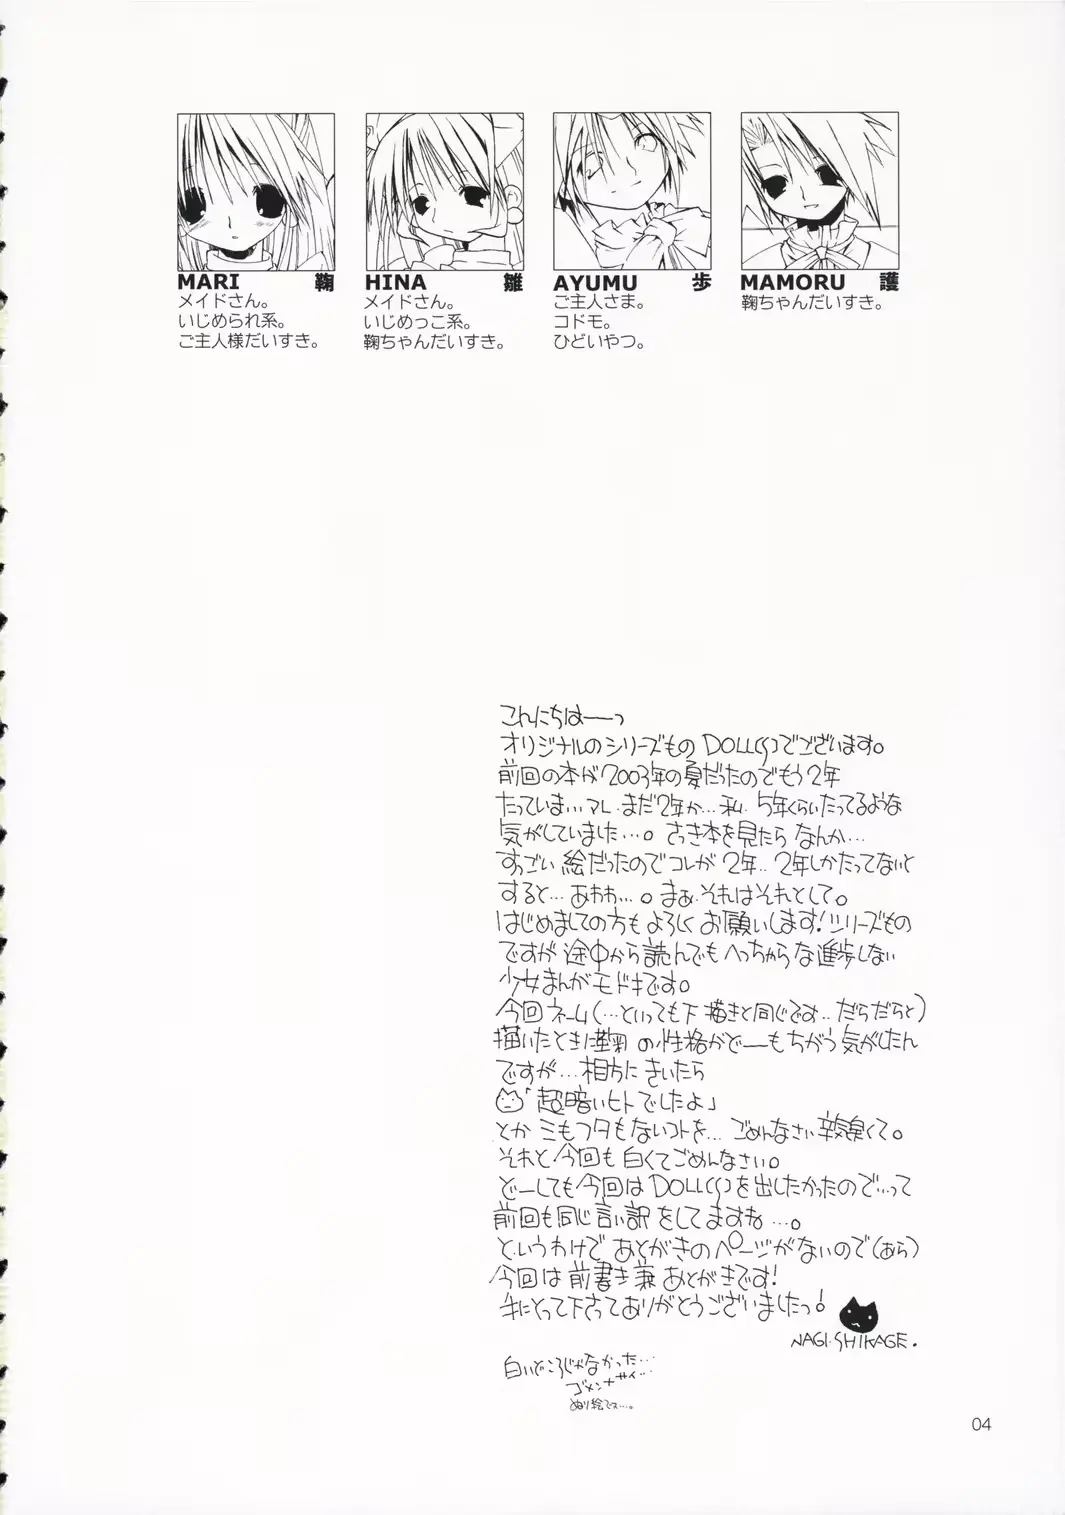 MARI 鞠
メイドさん。
いじめられ系。
ご主人様だいすき。
HINA 雛
メイドさん。
いじめっこ系。
鞠ちゃんだいすき。
AYUMU 歩
ご主人さま。
コドモ。
ひどいやつ。
MAMORU 護
鞠ちゃんだいすき。
こんにちはーっ
オリジナルのシリーズもの DOLL(S)でございます。
前回の本が2003年の夏だったのでもう2年
たっていま…アレ.まだ2年か…私.5年くらいたってるような
気がしていました…。さっき本を見たら なんか…
すっごい 絵だったのでコレが 2年..2年しかたってないと
すると…あわわ…。まぁ.それはそれとして。
はじめましての方も よろしく お願いします!シリーズもの
ですが 途中から読んでもへっちゃらな進歩しない
少女まんがモドキです。
今回 ネーム(…といっても下描きと同じです..だらだらと)
描いたときに鞠 の性格がどーもちがう気がしたん
ですが…相方に きいたら
「超暗いヒトでしたよ」
とか ミもフタもないコトを… ごめんなさい 辛気臭くて。
それと.今回も 白くてごめんなさい。
どーしても今回は DOLL(S)を出したかったので…って
前回も同じ言い訳 をしてますね…。
というわけで あとがきのページがないので(あら)
今回は 前書き兼 あとがきです!
手にとって下さってありがとうございましたっ!
NAGI.SHIKAGE.
白いどころじゃなかった…
ゴメンナサイ…
ぬり絵でス…。
04